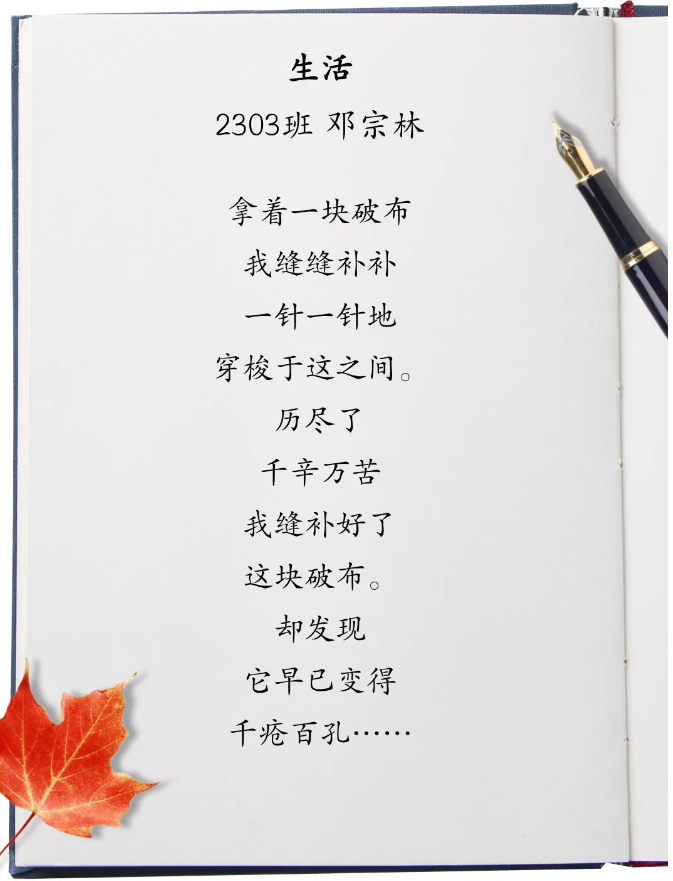 生活
2303班 邓宗林
拿着一块破布
我缝缝补补
一针一针地
穿梭于这之间。
历尽了
千辛万苦
我缝补好了
这块破布。
却发现
它早已变得
千疮百孔……